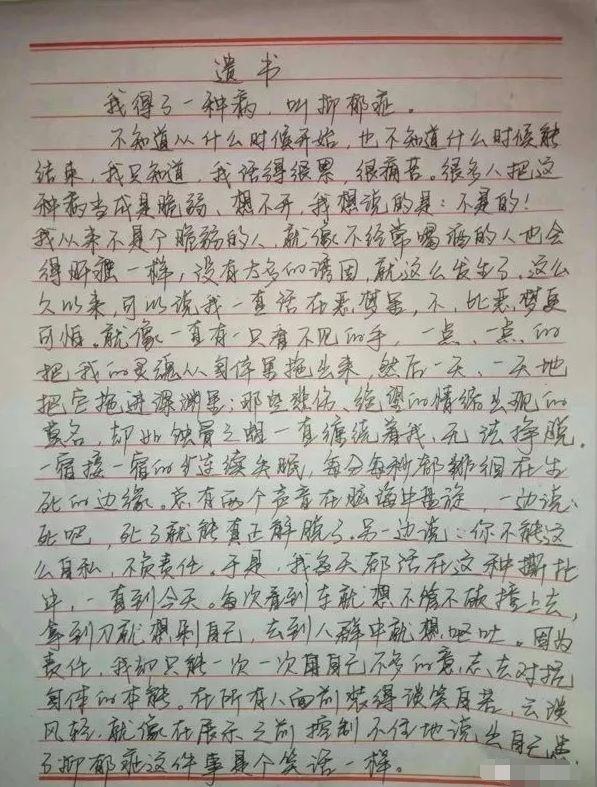 遗书
我得了一种病，叫抑郁症。
不知道从什么时候开始，也不知道什么时候能
结束，我只知道，我活得很累，很痛苦。很多人把这
种病当成是脆弱、想不开，我想说的是：不是的！
我从来不是个脆弱的人，就像不经常喝酒的人也会
得肝癌一样，没有太多的诱因，就这么发生了。这么
久以来，可以说我一直活在恶梦里，不，比恶梦更
可怕。就像一直有一只看不见的手，一点、一点的
把我的灵魂从身体里拖出来，然后一天、一天地
把它拖进深渊里；那些悲伤、绝望的情绪出现的
莫名，却如蚀骨之蛆一直缠绕着我，无法挣脱。
一宿接一宿的连续失眠，每分每秒都徘徊在生
死的边缘。总有两个声音在脑海中盘旋，一边说：
死吧，死了就能真正解脱了。另一边说：你不能这
么自私，不负责任。于是，我每天都活在这种撕扯
中，一直到今天。每次看到车就想不管不顾撞上去，
拿到刀就想剁自己，去到人群中就想呕吐。因为
责任，我却只能一次一次用自己不多的意志去对抗
身体的本能。在所有人面前装得谈笑自若，云淡
风轻，就像在展示之前控制不住地说出自己患
了抑郁症这件事是个笑话一样。